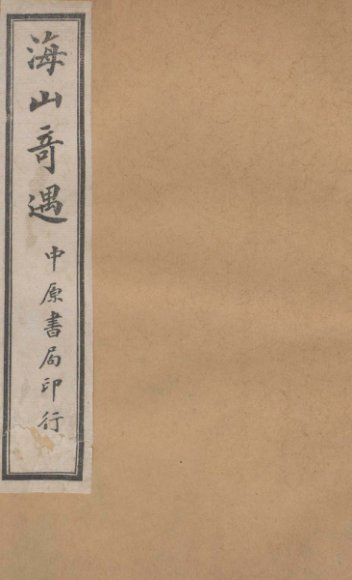 海山奇遇
中原書局印行